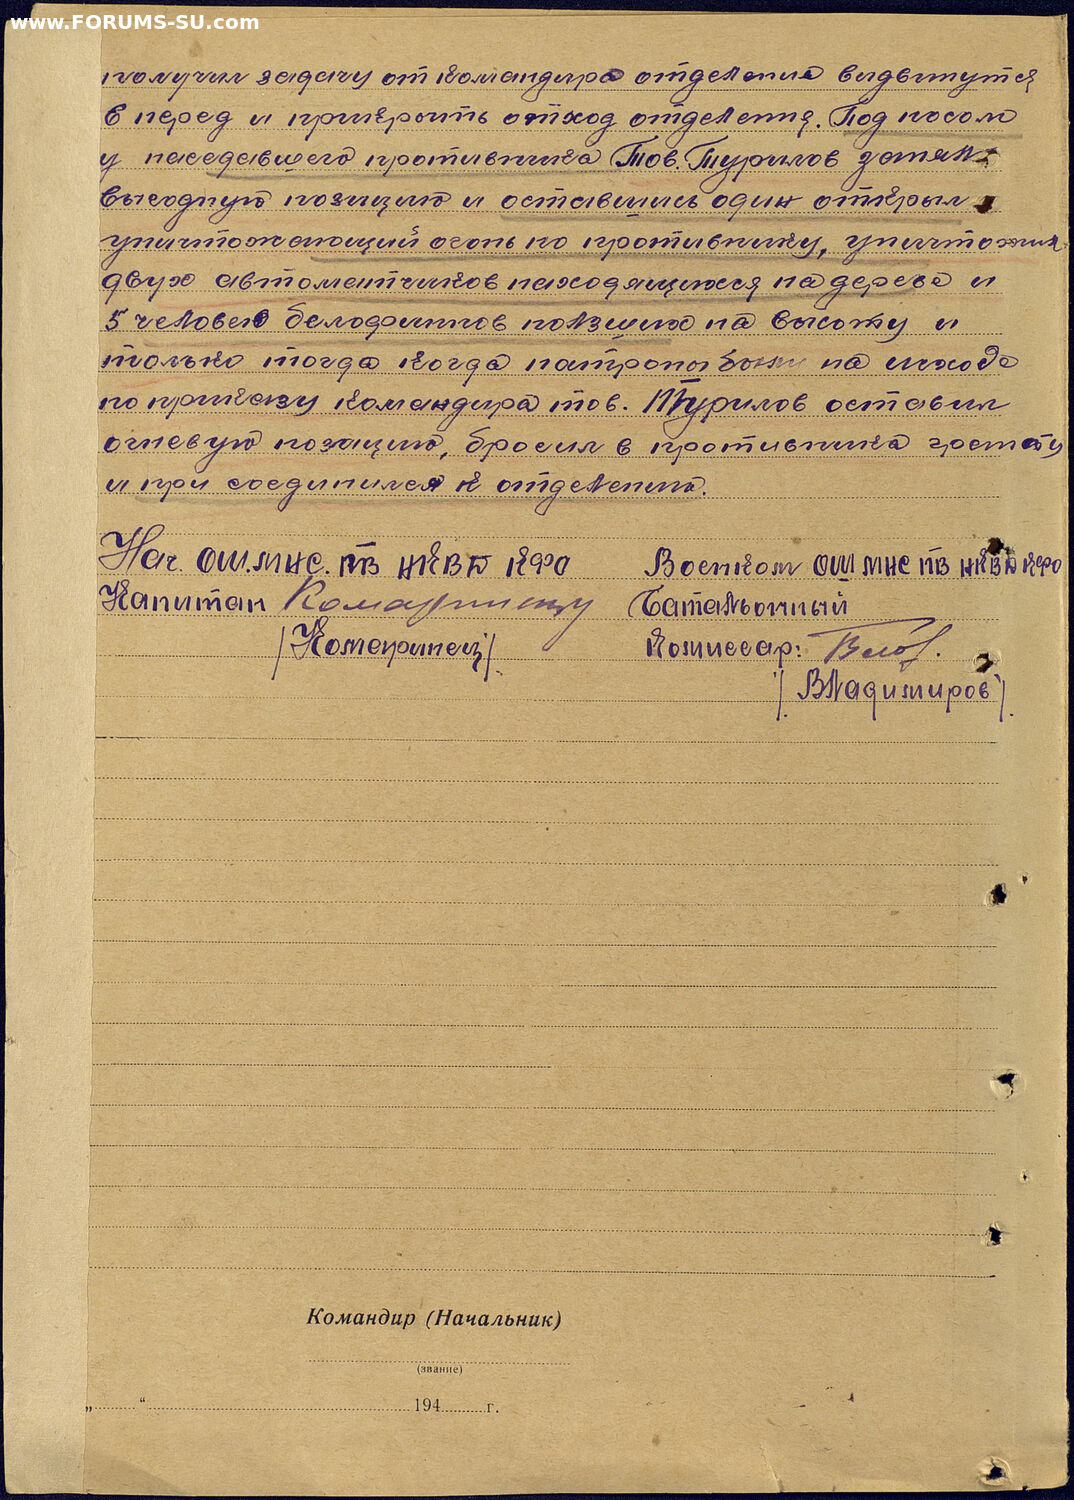 www.FORUMS-SU.com
получил задачу от командира отделения выдвинутся
в перед и прикрыть отход отделения. Под носом
у наседавшего противника Тов. Турилов занял
выгодную позицию и оставшись один открыл
уничтожающий огонь по противнику, уничтожил
двух автоматчиков находящихся на дереве и
5 человек белофиннов ползших на высоту и
только тогда когда патроны были на исходе
по приказу командира тов. Турилов оставил
огневую позицию, бросил в противника гранату
и при соединился к отделению.
Нач. ОШ.МНС. ПВ НКВД КФО Военком ОШ МНС ПВ НКВД КФО
Капитан Батальонный
Комиссар:
/Владимиров/.
Командир (Начальник)
(звание)
„ “ 194 г.